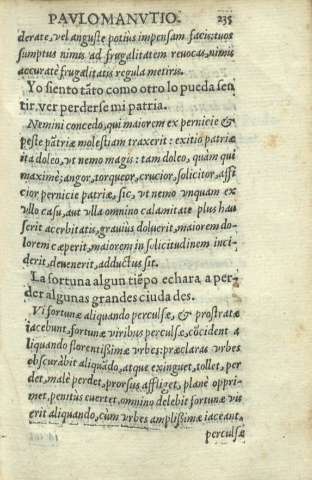 PAVLO MANVTIO. 235
derate, vel anguste potius impensam facis: tuos
sumptus nimis ad frugalitatem reuocas, nimis
accuratè frugalitatis regula metiris.
Yo siento tãto como otro lo pueda sen
tir, ver perderse mi patria.
Nemini concedo, qui maiorem ex pernicie &
peste pãtriæ molestiam traxerit: exitio patriæ
ita doleo, vt nemo magis: tam doleo, quàm qui
maximè; angor, torqueor, crucior, solicitor, affi
cior pernicie patriæ, sic, vt nemo vnquam ex
vllo casu, aut vlla omnino calamitate plus hau
serit acerbitatis, grauius doluerit, maiorem do-
lorem cæperit, maiorem in solicitudinem inci-
derit, deuenerit, adductus sit.
La fortuna algun tiẽpo echara a per-
der algunas grandes ciudades.
Vi fortunæ aliquando perculsæ, & prostratæ
iacebunt, fortunæ viribus perculsæ, cõcident a
liquando florentissimæ vrbes: præclaras vrbes
obscurabit aliquãdo, atque exinguet, tollet, per
det, malè perdet, prorsus affliget, planè oppri-
met, penitus euertet, omnino delebit fortunæ vis
erit aliquando, cùm vrbes amplissimæ iaceant,
perculsæ